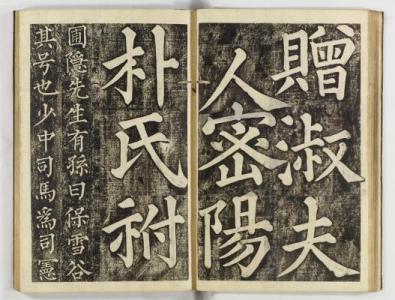 贈淑夫
人密陽
朴氏祔
圃隐先生有孫曰保雪谷
其号也少中司馬爲司憲